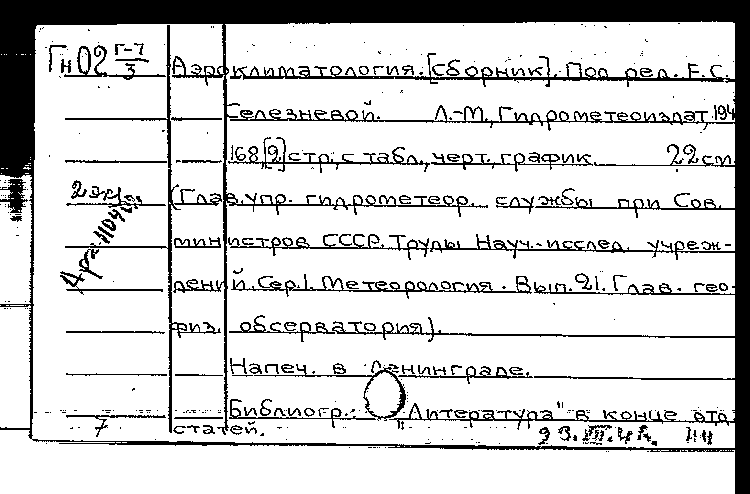 Гн 02 Г-7/3 Аэроклиматология. [Сборник]. Под ред. Е.С.
Селезневой. Л.-М., Гидрометеоиздат, 194
168[2] стр; с табл., черт., график. 22 см
2 экз. (Глав. упр. гидрометеор. службы при Сов.
министров СССР. Труды Науч.-исслед. учреж-
дений. Сер. 1. Метеорология. Вып. 21. Глав. гео-
физ. обсерватория).
Напеч. в Ленинграде.
Библиогр.: "Литература" в конце отд.
7 статей.